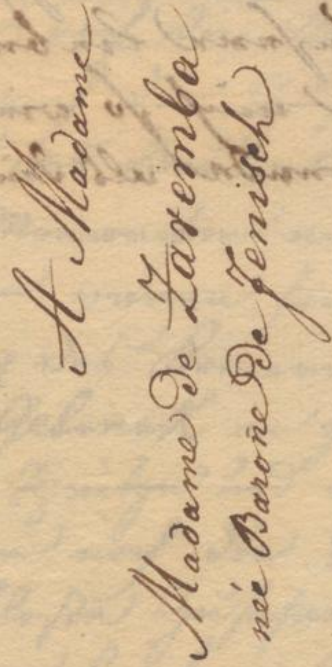 A Madame
Madame de Zaremba
née Baroñe de Jenisch